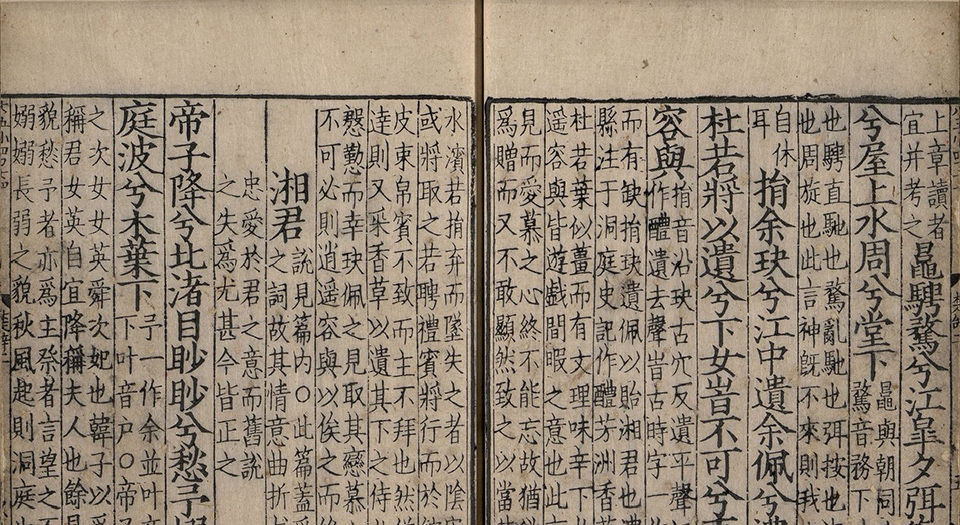 上章讀者
宜并考之
鼂騁騖兮江皐夕弭
兮屋上水周兮堂下
鼂與朝同
騖音務下
也騁直馳也騖亂馳也弭按也
也周旋也此言神旣不來則我
自休
耳
捐余玦兮江中遺余佩兮
杜若將以遺兮下女旹不可兮
容與
捐音沿玦古穴反遺平聲
作醴遺去聲旹古時字一
而有缺捐玦遺佩以貽湘君也
縣注于洞庭史記作醴芳洲香
杜若葉似薑而有文理味辛下
遥容與皆遊戲間暇之意也此
見而愛慕之心終不能忘故猶
爲贈而又不敢顯然致之以當
水濱若捐弃而墜失之者以陰
或將取之若聘禮賓將行而於
皮束帛賓不致而主不拜也然
達則又采香草以遺其下之侍
慇懃而幸玦佩之見取其戀慕
不可必則逍遥容與以俟之而
湘君
說見篇內○此篇蓋
之詞故其情意曲折
忠愛於君之意而舊說
之失爲尤甚今皆正之
帝子降兮北渚目眇眇兮愁予
庭波兮木葉下
予一作余並叶
下叶音户○帝
之次女女英舜次妃也韓子以
稱君女英自宜降稱夫人也餘
貌愁予者亦爲主祭者言望之不
嫋嫋長弱之貌秋風起則洞庭